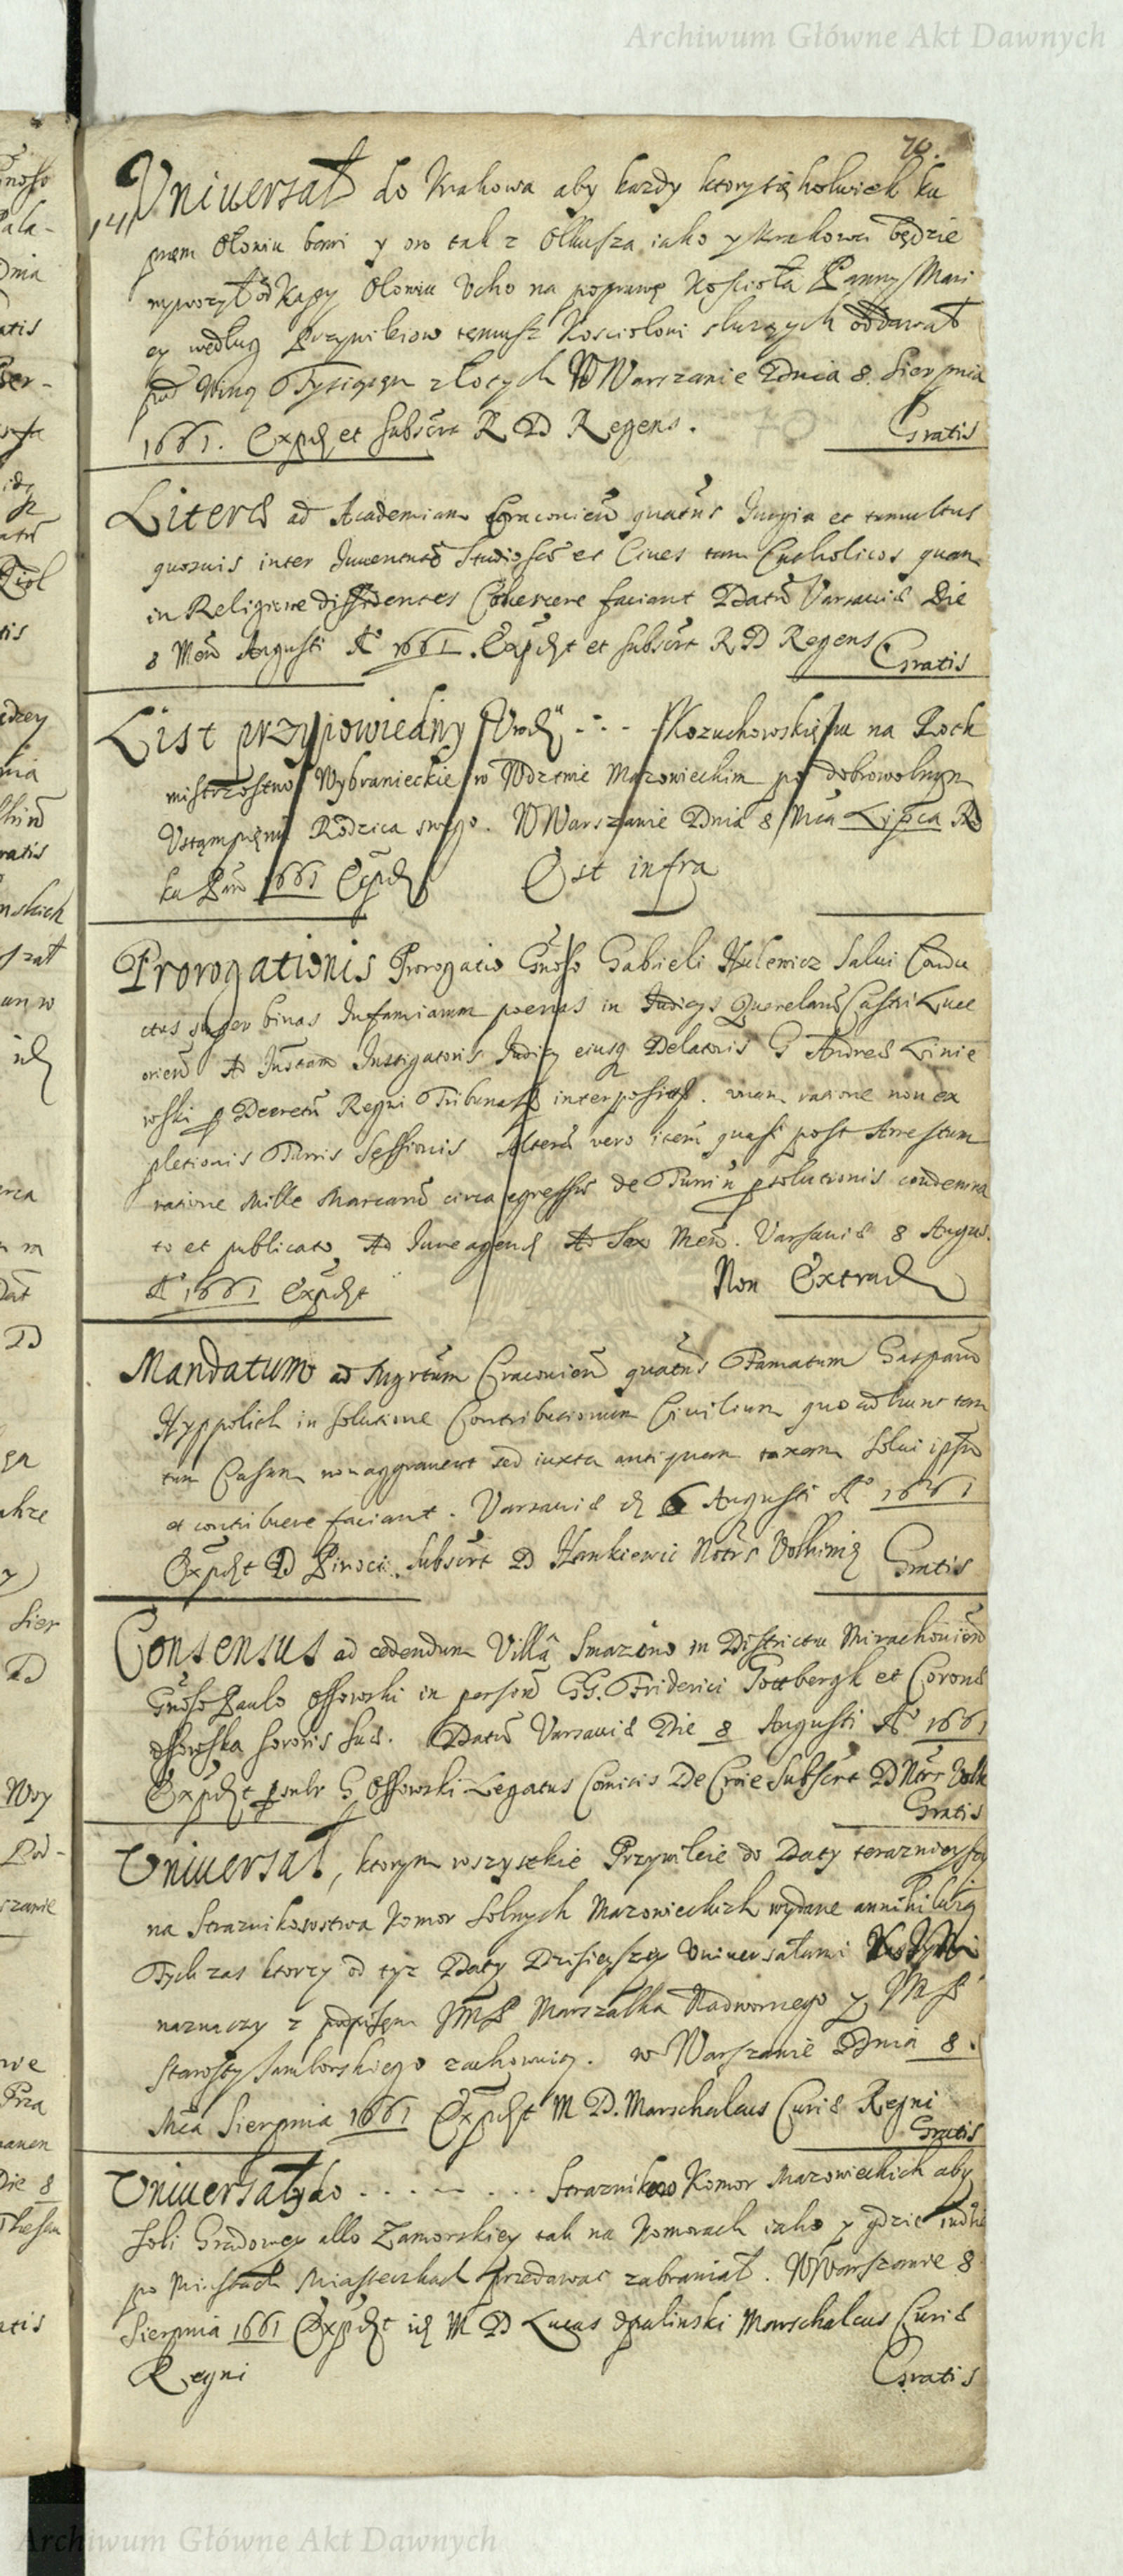 Archiwum Główne Akt Dawnych
70.
Uniuersał do Krakowa aby kazdy ktory się kolwiek ku
pnem Ołowiu bawi y on tak z Olkusza iako y Krakowa będzie
wyworził od kazdy Ołowiu Ucho na poprawę Kościoła Panny Mari
ey według Przywileiow temusz Kosciołowi słuzących oddawał
pod Winą Tysiącem złotych W Warszawie Dnia 8. Sierpnia
1661. Expd et subscrt R D Regens. Gratis
Literæ ad Academiam Cracovien quatus Iurgia et tumultus
quosuis inter Iuuentutē Studiosā et Ciues tam Catholicos quam
in Religione dissidentes Cohercere faciant Datū Varsauiæ Die
8 Men Augusti Ao 1661. Expdt et subscrt R D Regens Gratis
List przypowiedny Urod . . . Kozuchowskiemu na Rot
mistrzostwo Wybranieckie w Wdztwie Mazowieckim po dobrowolnym
Ustąmpieniu Rodzica swego. W Warszawie Dnia 8 Mca Lipca Ro
ku Pan 1661 Expd Est infra
Prorogationis Prorogatio Gnoso Gabrieli Hulewicz Salui Condu
ctus super binas Infamiarum poenas in Iudicys Querelarū Castri Luce
orien Ad Instam Instigatoris Iudicy eiusq Delatoris G Andreæ Linie
wski p Decretū Regni Tribunals interpositas. unam ratione non ex
pletionis Turris Sessionis Alteru vero item quasi post Arrestum
ratione Mille Marcarū circa egressū de Turri psolutionis condemna
to et publicato Ad Iure agend Ad Sex Men. Varsauiæ 8 Augus.
Ao 1661 Expdt Non Extrad
Mandatum ad Mgrtum Cracovien quatus Famatum Gasparū
Hyppolich in solutione Contributionum Ciuilium quo ad hunc tan
tum Casum non aggrauent sed iuxta antiquam taxam Solui ipsū
et contribuere faciant. Varsauiæ d 6 Augusti Ao 1661
Expdt D Pinocci. Subscrt D Hankiewic Notrs Volhiniæ Gratis
Consensus ad cedendum Villâ Smazino in Districtu Mirachouien
Gnoso Paulo Ossowski in person GG. Friderici Gottbergk et Coronæ
Ossowska sororis suæ. Datū Varsauiæ Die 8 Augusti Ao 1661
Expdt pmlr G Ossowski Legatus Comitis De Croie Subscrt D Ntrs Volh
Gratis
Uniuersał, ktorym wszystkie Przywileie do Daty terazniejszy
na Straznikowstwa Komor Solnych Mazowieckich wydane annihiluią
Tych zas ktorzy od tyz Daty Dzisieyszey Uniuersałami
naznaczy z podpisem JMP Marszałka Nadwornego y JMP
Starosty Samborskiego zachowuią. w Warszawie Dnia 8.
Mca Sierpnia 1661 Expdt M D. Marschalcus Curiæ Regni
Gratis
Uniuersały do . . . . . . . Straznikow Komor Mazowieckich aby
Soli Gradowey albo Zamorskiey tak na Komorach iako y gdzie indzie
po Miastach Miasteczkach przedawac zabraniał. W Warszawie 8
Sierpnia 1661 Expdt id M D Lucas Opalinski Marschalcus Curiæ
Regni Gratis
Archiwum Główne Akt Dawnych